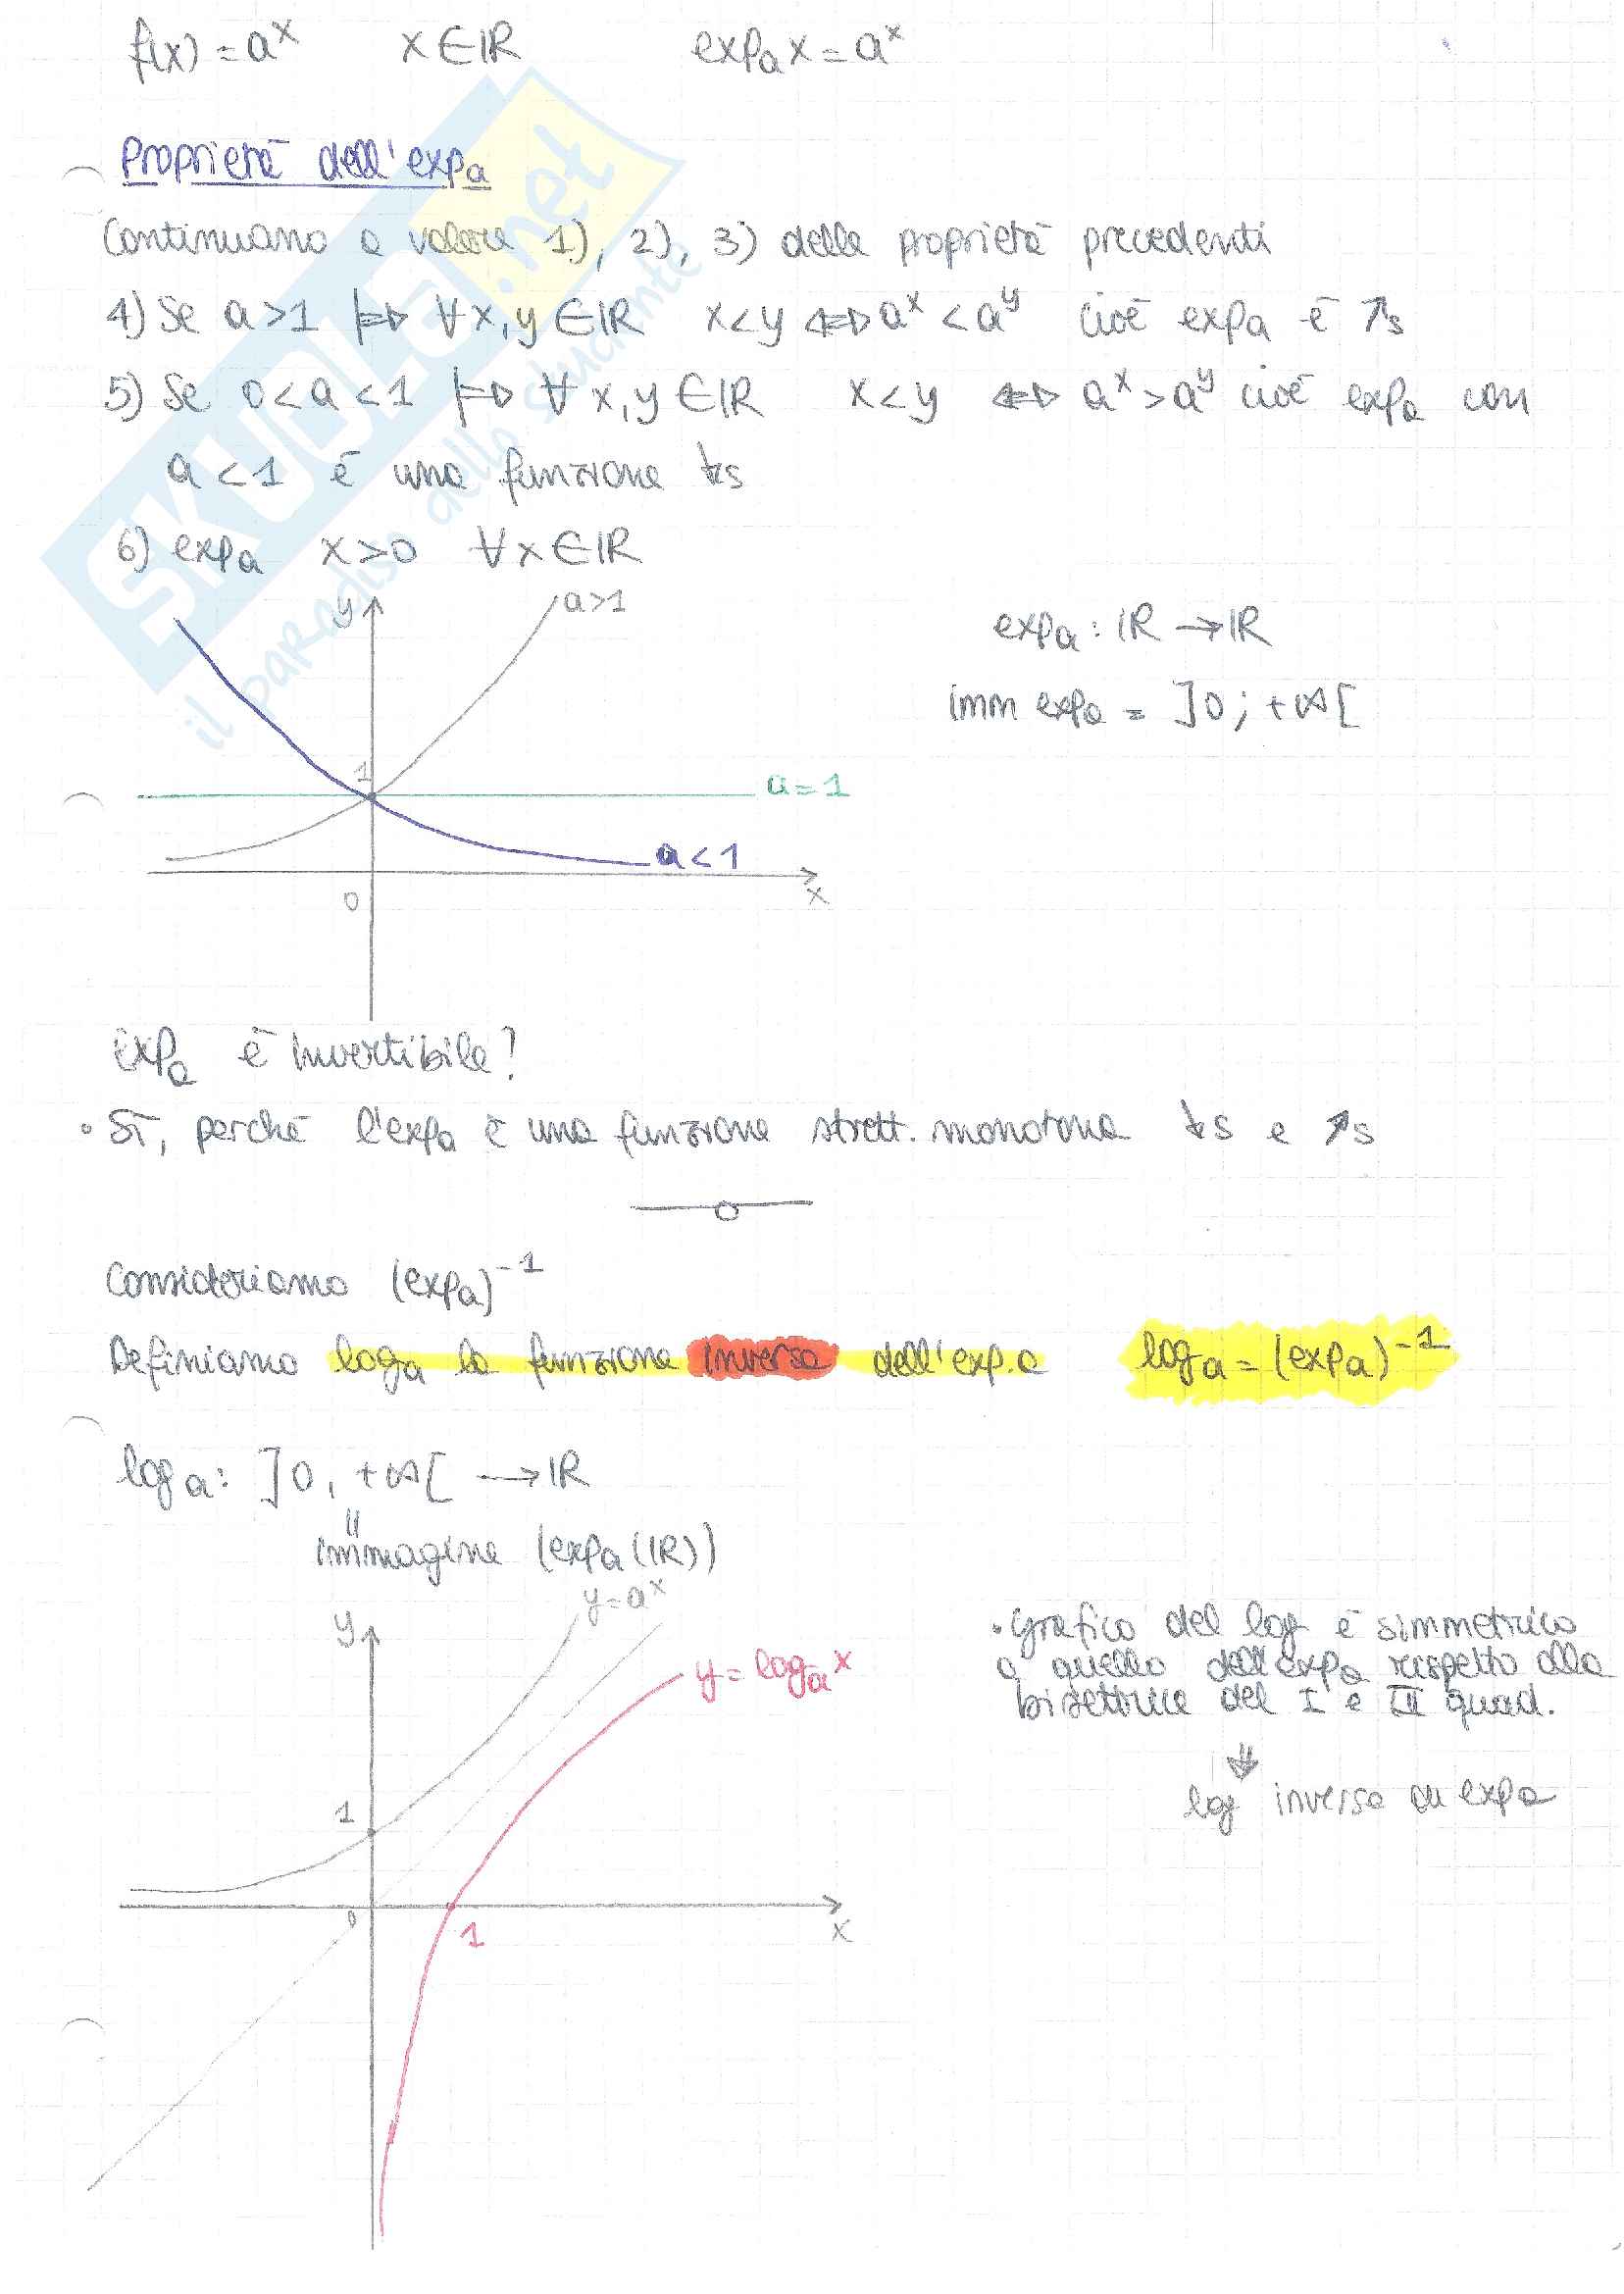 f(x) = aˣ x ∈ ℝ expₐ x = aˣ
Proprietà dell'expₐ
Continuano a valere 1), 2), 3) delle proprietà precedenti
4) Se a > 1 |⇒ ∀ x, y ∈ ℝ x < y ⇔ aˣ < aʸ cioè expₐ è ↑s
5) Se 0 < a < 1 |⇒ ∀ x, y ∈ ℝ x < y ⇔ aˣ > aʸ cioè expₐ con
a < 1 è una funzione ↓s
6) expₐ x > 0 ∀ x ∈ ℝ
y a>1
expₐ : ℝ → ℝ
imm expₐ = ]0 ; +∞[
1
a = 1
a < 1
0 x
expₐ è invertibile?
• Sì, perché l'expₐ è una funzione strett. monotona ↓s e ↑s
Consideriamo (expₐ)⁻¹
Definiamo logₐ la funzione inversa dell'exp.a logₐ = (expₐ)⁻¹
logₐ : ]0, +∞[ → ℝ
=
immagine (expₐ(ℝ))
y = aˣ
y
y = logₐ x
• grafico del log è simmetrico
a quello dell'expₐ rispetto alla
bisettrice del I e III quad.
⇓
log inversa di expₐ
1
0 1 x
SKUOLA.net
il paradiso dello studente